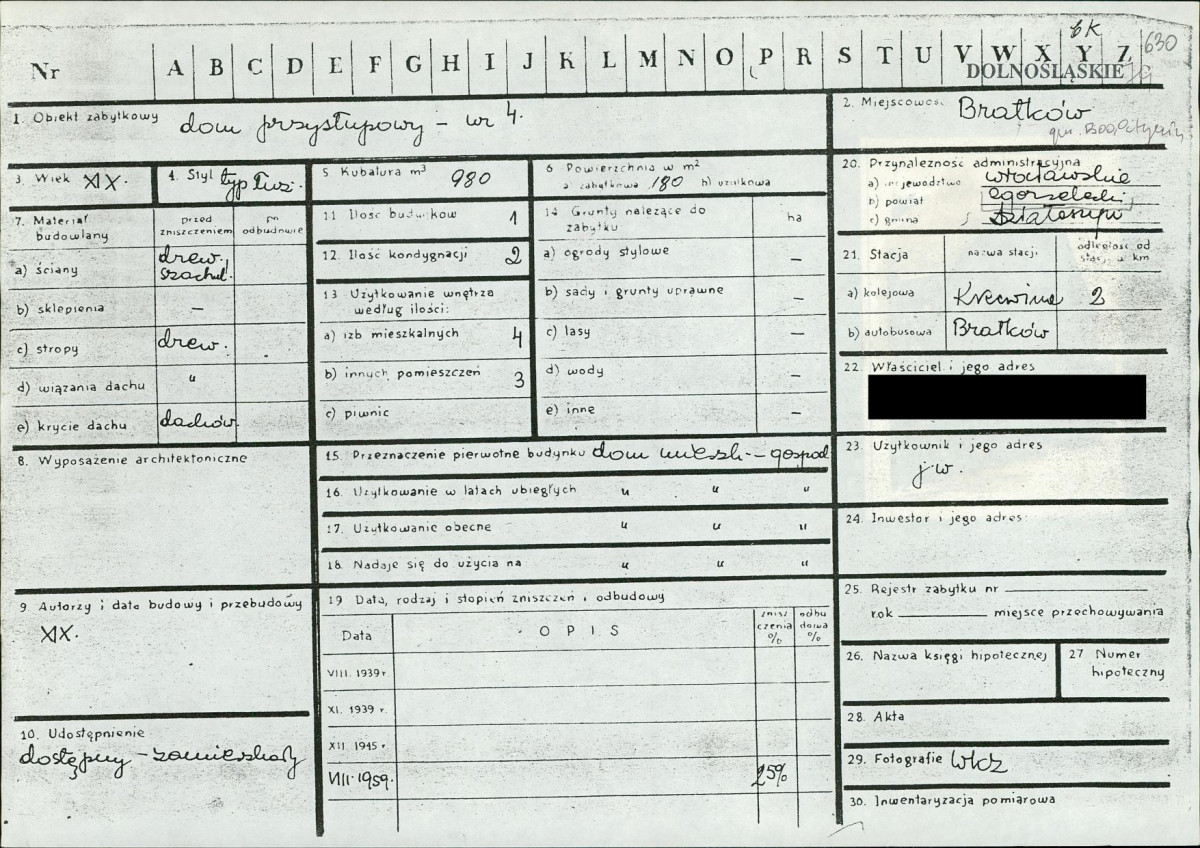 Nr A B C D E F G H I J K L M N O P R S T U V W X Y Z
630
DOLNOŚLĄSKIE
1. Obiekt zabytkowy dom przysłupowy – nr 4.
2. Miejscowość Bratków
3. Wiek XIX.
4. Styl typ łuż.
5. Kubatura m³ 980
6. Powierzchnia w m²
a) zabytkowa 180 b) użytkowa
20. Przynależność administracyjna
a) województwo wrocławskie
b) powiat zgorzelecki,
c) gmina Działoszyn
7. Materiał budowlany
przed zniszczeniem
po odbudowie
a) ściany drew., szachul.
b) sklepienia –
c) stropy drew.
d) wiązania dachu "
e) krycie dachu dachów.
11. Ilość budynków 1
12. Ilość kondygnacji 2
13. Użytkowanie wnętrza
według ilości:
a) izb mieszkalnych 4
b) innych pomieszczeń 3
c) piwnic
14. Grunty należące do
zabytku ha
a) ogrody stylowe –
b) sady i grunty uprawne –
c) lasy –
d) wody –
e) inne –
21. Stacja nazwa stacji odległość od stacji w km
a) kolejowa Krzewina 2
b) autobusowa Bratków
22. Właściciel i jego adres
23. Użytkownik i jego adres
j.w.
24. Inwestor i jego adres:
25. Rejestr zabytku nr
rok miejsce przechowywania
26. Nazwa księgi hipotecznej
27. Numer
hipoteczny
28. Akta
29. Fotografie WKZ
30. Inwentaryzacja pomiarowa
8. Wyposażenie architektoniczne
15. Przeznaczenie pierwotne budynku dom mieszk. – gospod
16. Użytkowanie w latach ubiegłych " " "
17. Użytkowanie obecne " " "
18. Nadaje się do użycia na " " "
9. Autorzy i data budowy i przebudowy
XIX.
10. Udostępnienie
dostępny – zamieszkały
19. Data, rodzaj i stopień zniszczeń i odbudowy
Data OPIS zniszczenia % odbudowa %
VIII. 1939 r.
XI. 1939 r.
XII. 1945 r.
VIII. 1959. 25%